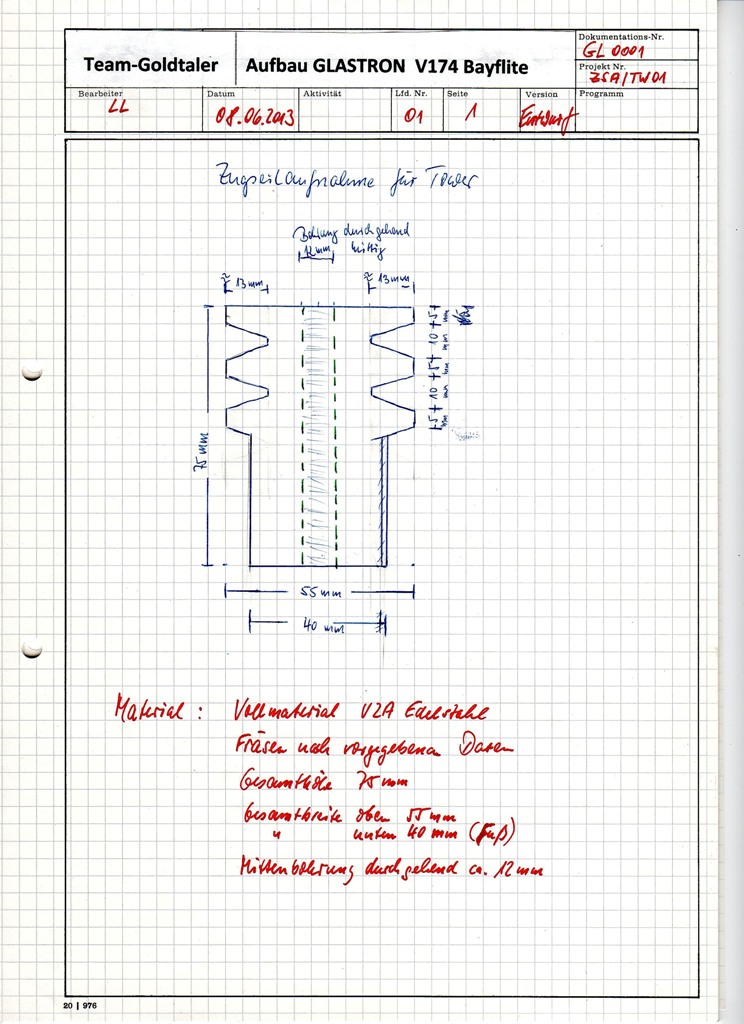 Team-Goldtaler
Aufbau GLASTRON V174 Bayflite
Dokumentations-Nr.
GL 0001
Projekt Nr.
ZSA/TW01
Bearbeiter
LL
Datum
08.06.2013
Aktivität
Lfd. Nr.
01
Seite
1
Version
Entwurf
Programm
Zugseilaufnahme für Tower
Bohrung durchgehend
12mm mittig
≈ 13mm
≈ 13mm
5+ 10 +5+ 10 +5+
mm mm mm mm mm
75 mm
55 mm
40 mm
Material : Vollmaterial V2A Edelstahl
Fräsen nach vorgegebenen Daten
Gesamthöhe 75 mm
Gesamtbreite oben 55 mm
" unten 40 mm (Fuß)
Mittenbohrung durchgehend ca. 12mm
20 | 976